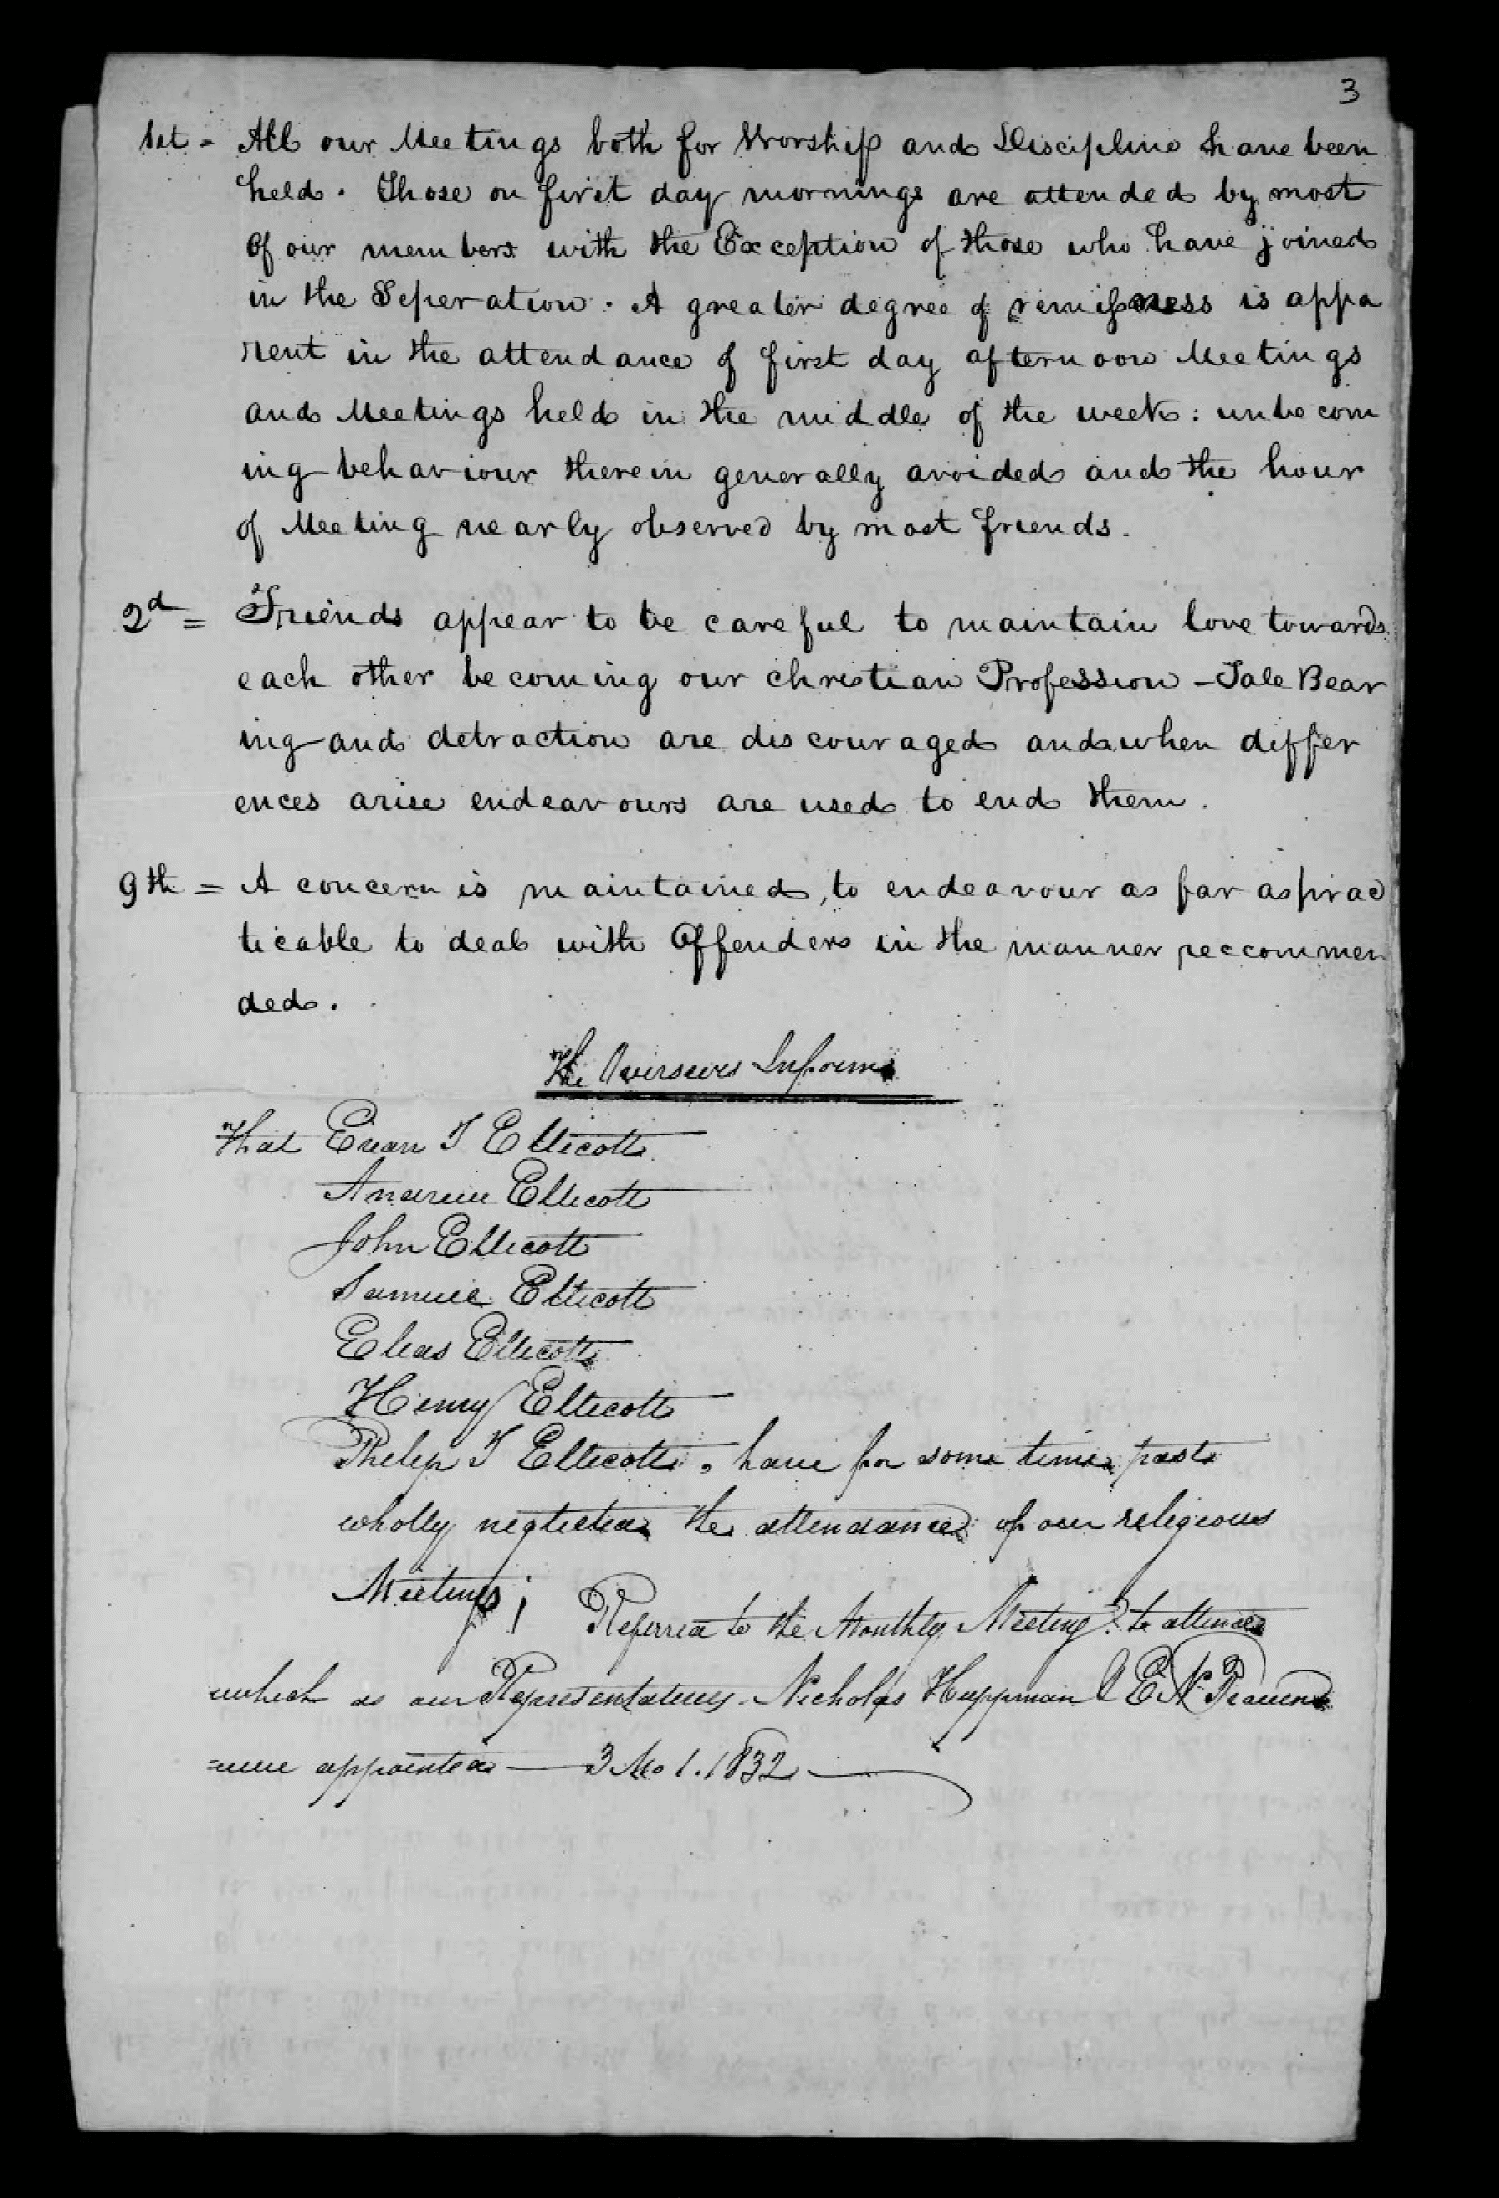 3
1st = All our Meetings both for Worship and Discipline have been
held. Those on first day mornings are attended by most
of our members with the Exception of those who have joined
in the Seperation. A greater degree of remissness is appa
rent in the attendance of first day afternoon Meetings
and Meetings held in the middle of the week: unbecom
ing behaviour therein generally avoided and the hour
of Meeting nearly observed by most friends.
2d = Friends appear to be careful to maintain love towards
each other becoming our christian Profession - Tale Bear
ing and detraction are discouraged and when differ
ences arise endeavours are used to end them.
9th = A concern is maintained, to endeavour as far as prac
ticable to deal with Offenders in the manner reccommen
ded.
The Overseers Inform
That Evan T Ellicott
Andrew Ellicott
John Ellicott
Samuel Ellicott
Elias Ellicott
Henry Ellicott
Philip T Ellicott, have for some time past
wholly neglected the attendance of our religious
Meetings; Referred to the Monthly Meeting: to attend
which as our Representatives Nicholas Huppman & E N
were appointed 3 Mo 1. 1832